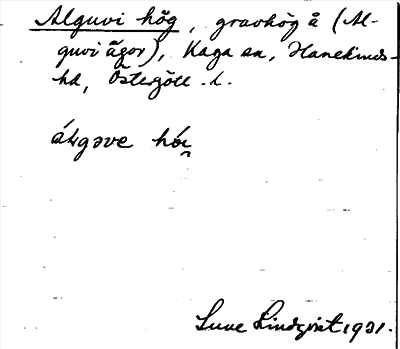 Alguvi hög, gravhög å (Al-
guvi ägor), Kaga sn, Hanekinds
hd, Östergötl. l.
Sune Lindqvist 1921.